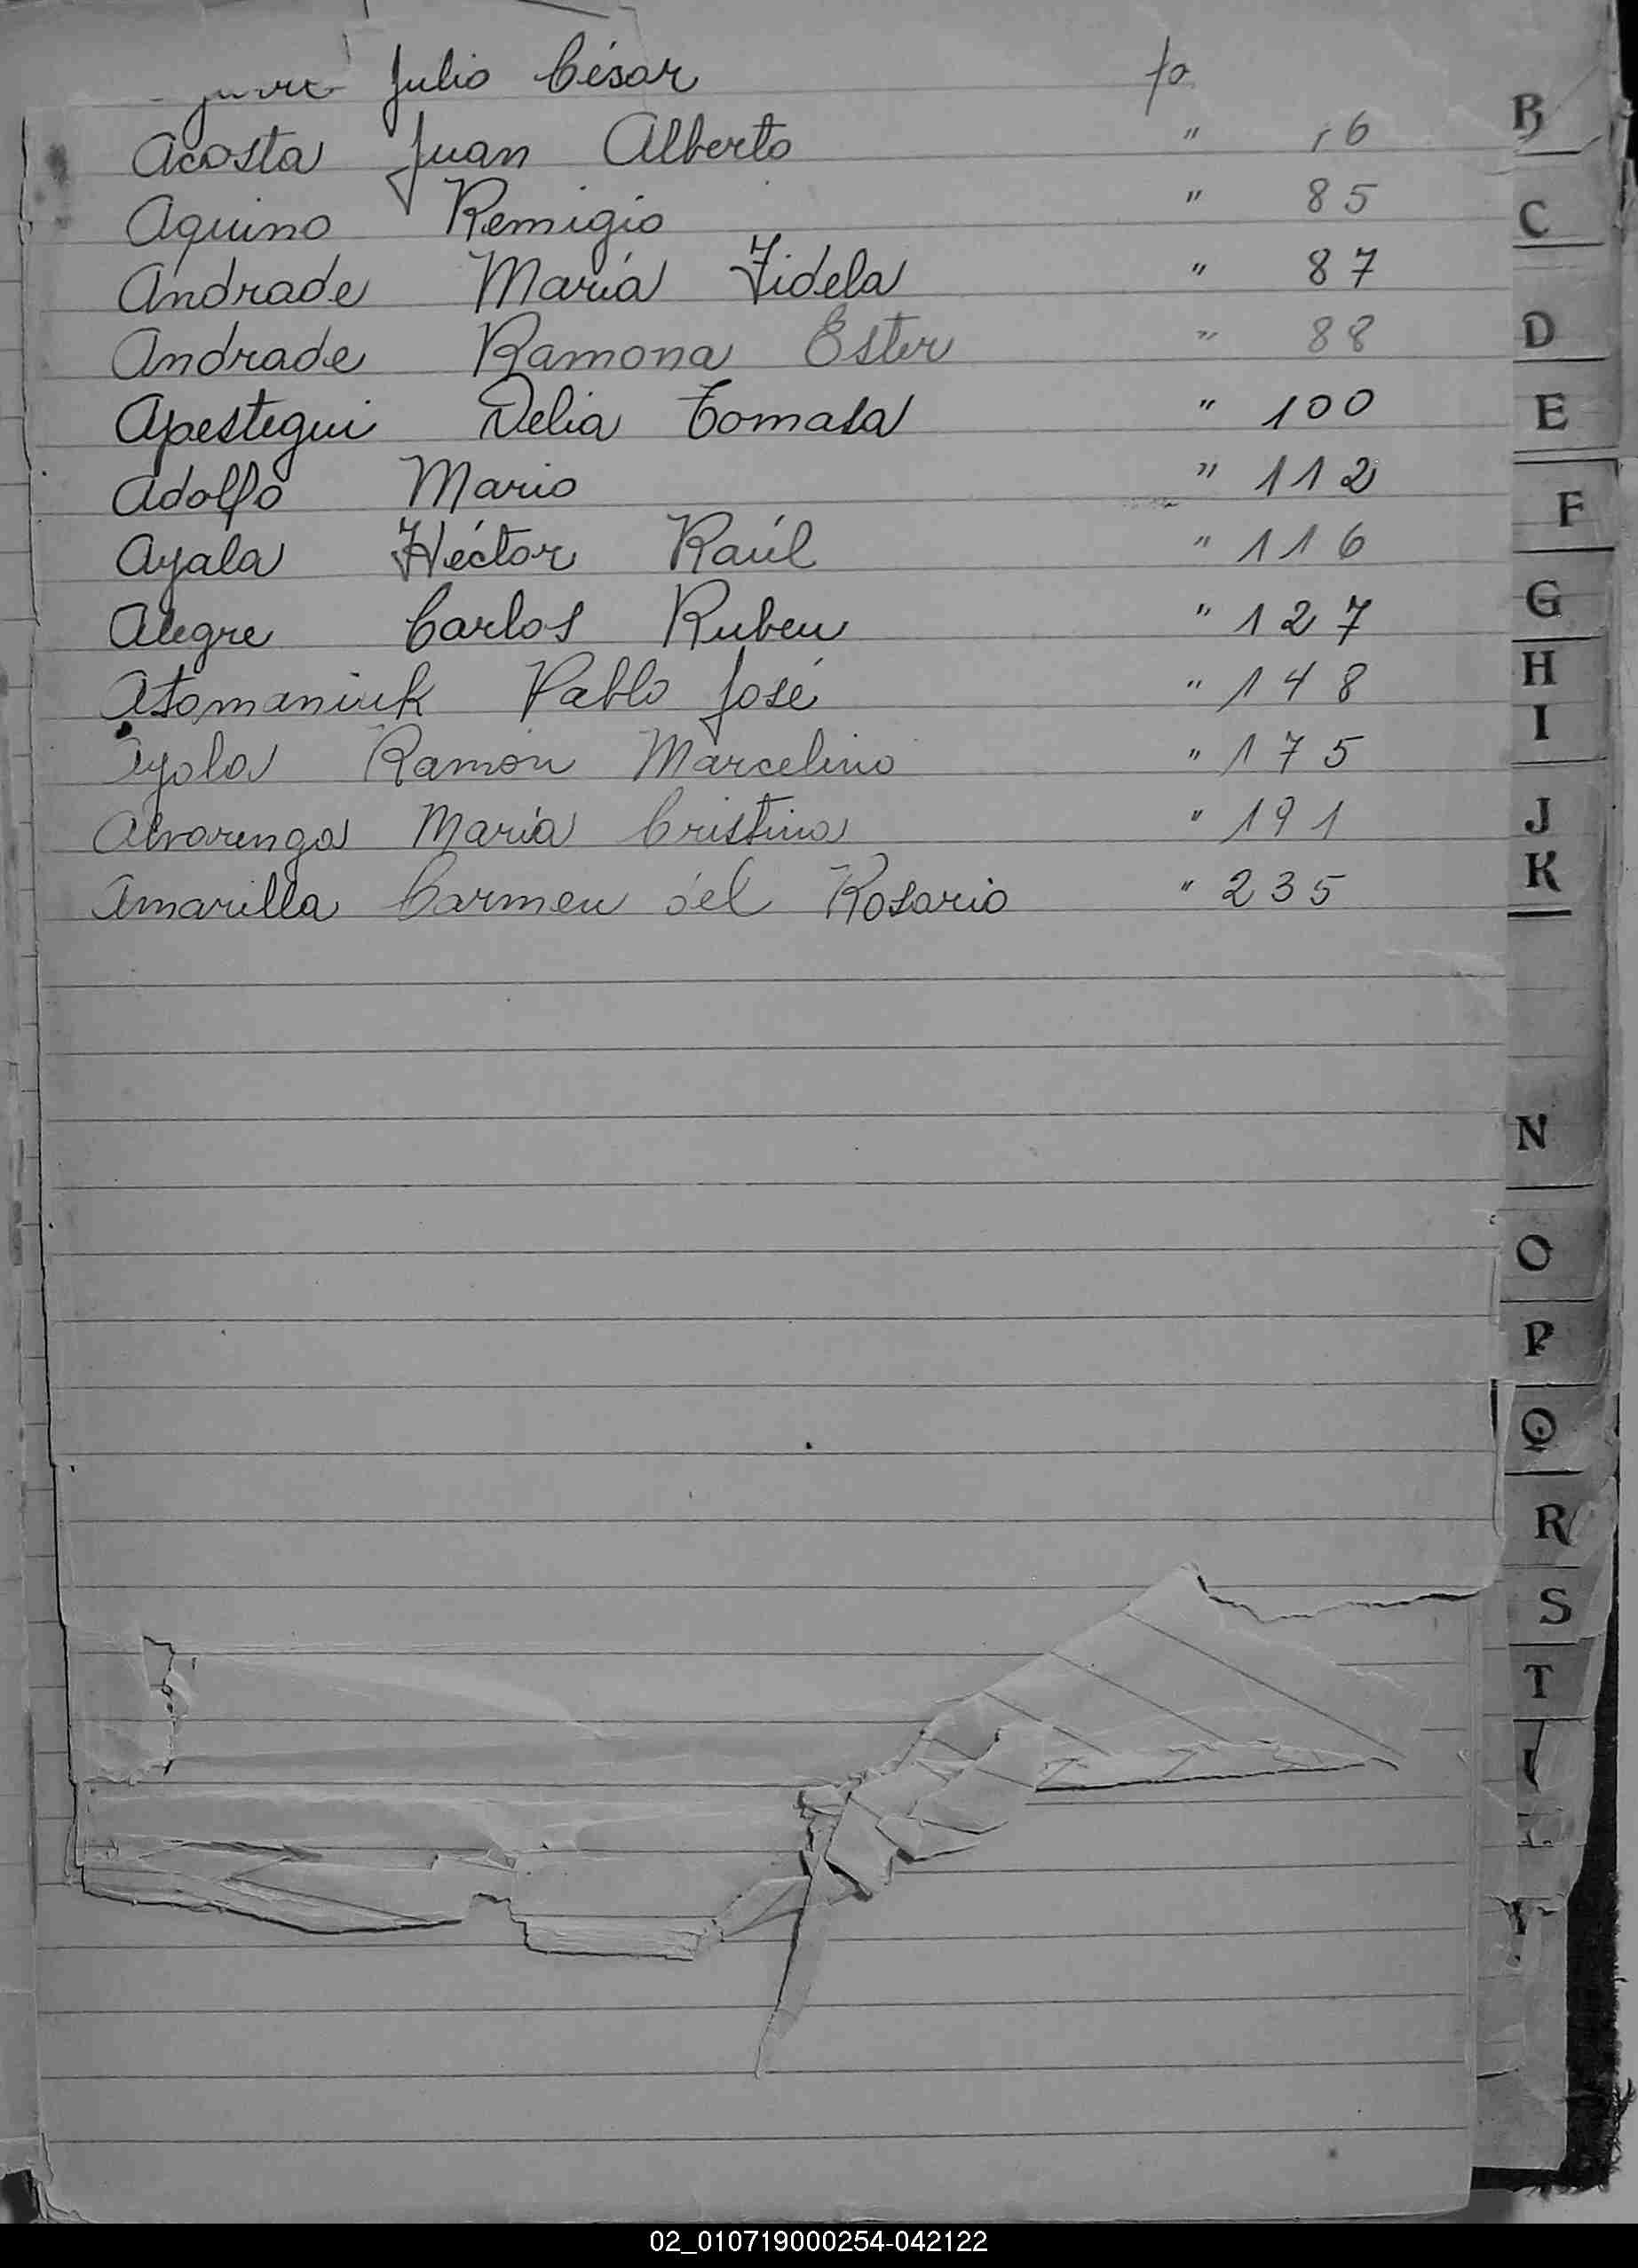 Julio César fo
Acosta Juan Alberto " 16
Aquino Remigio " 85
Andrade María Fidela " 87
Andrade Ramona Ester " 88
Apestegui Delia Tomasa " 100
Adolfo Mario " 112
Ayala Héctor Raúl " 116
Alegre Carlos Ruben " 127
Atomaniuk Pablo José " 148
Ayala Ramón Marcelino " 175
Alvarenga María Cristina " 191
Amarilla Carmen del Rosario " 235
B
C
D
E
F
G
H
I
J
K
N
O
P
Q
R
S
T
Y
02_010719000254-042122